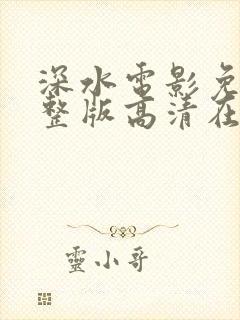 深水电影免
整版高清在
靈小哥